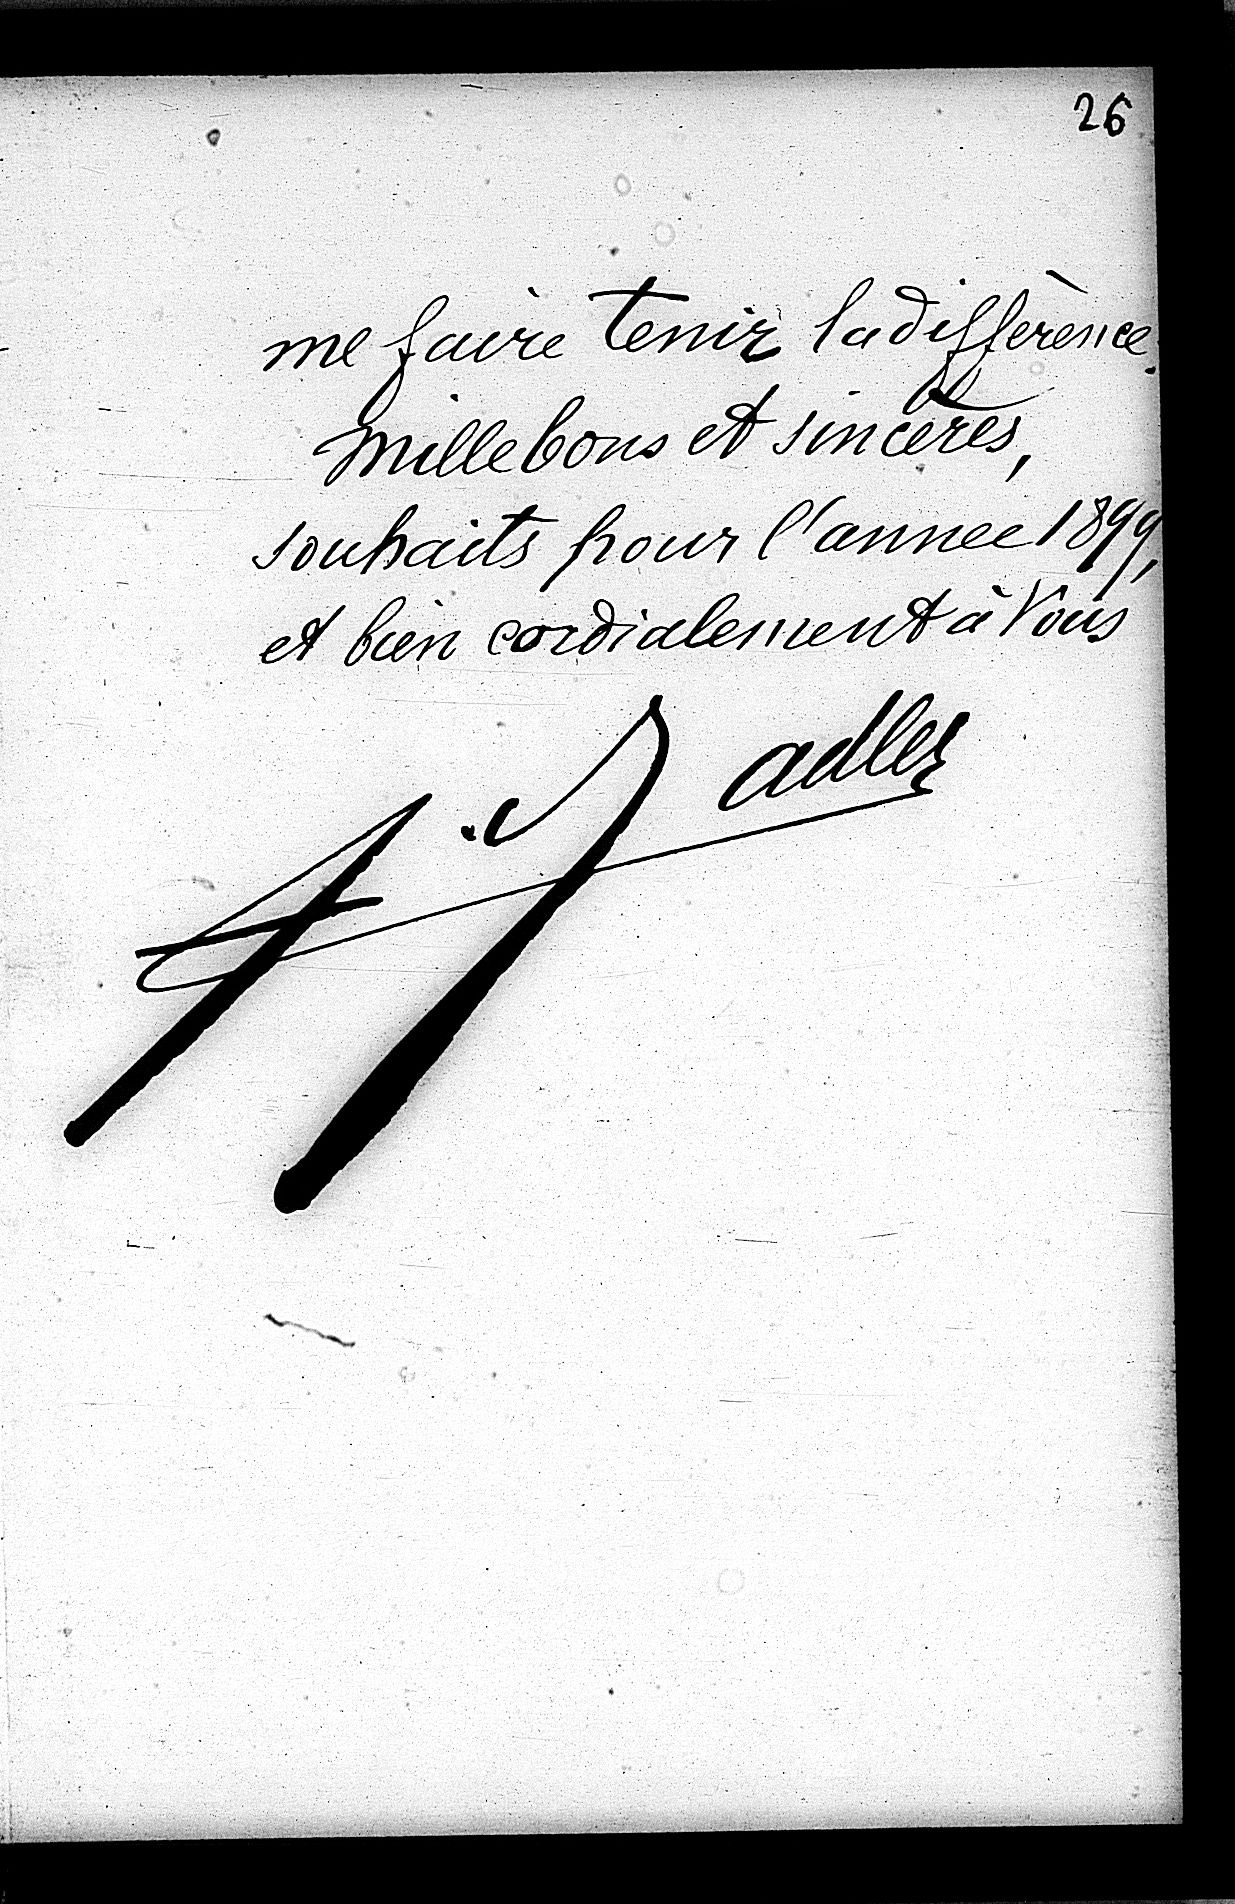 26
me faire tenir la diffèrence.
Mille bons et sincères,
souhaits pour l'annee 1899,
et bien cordialement à Vous
adler